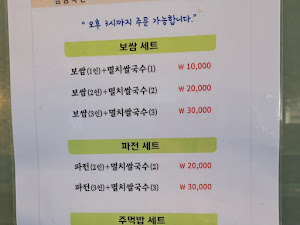 " 오후 3시까지 주문 가능합니다. "
보쌈 세트
보쌈(1인)+멸치쌀국수(1) ₩ 10,000
보쌈(2인)+멸치쌀국수(2) ₩ 20,000
보쌈(3인)+멸치쌀국수(3) ₩ 30,000
파전 세트
파전(2인)+멸치쌀국수(2) ₩ 20,000
파전(3인)+멸치쌀국수(3) ₩ 30,000
주먹밥 세트